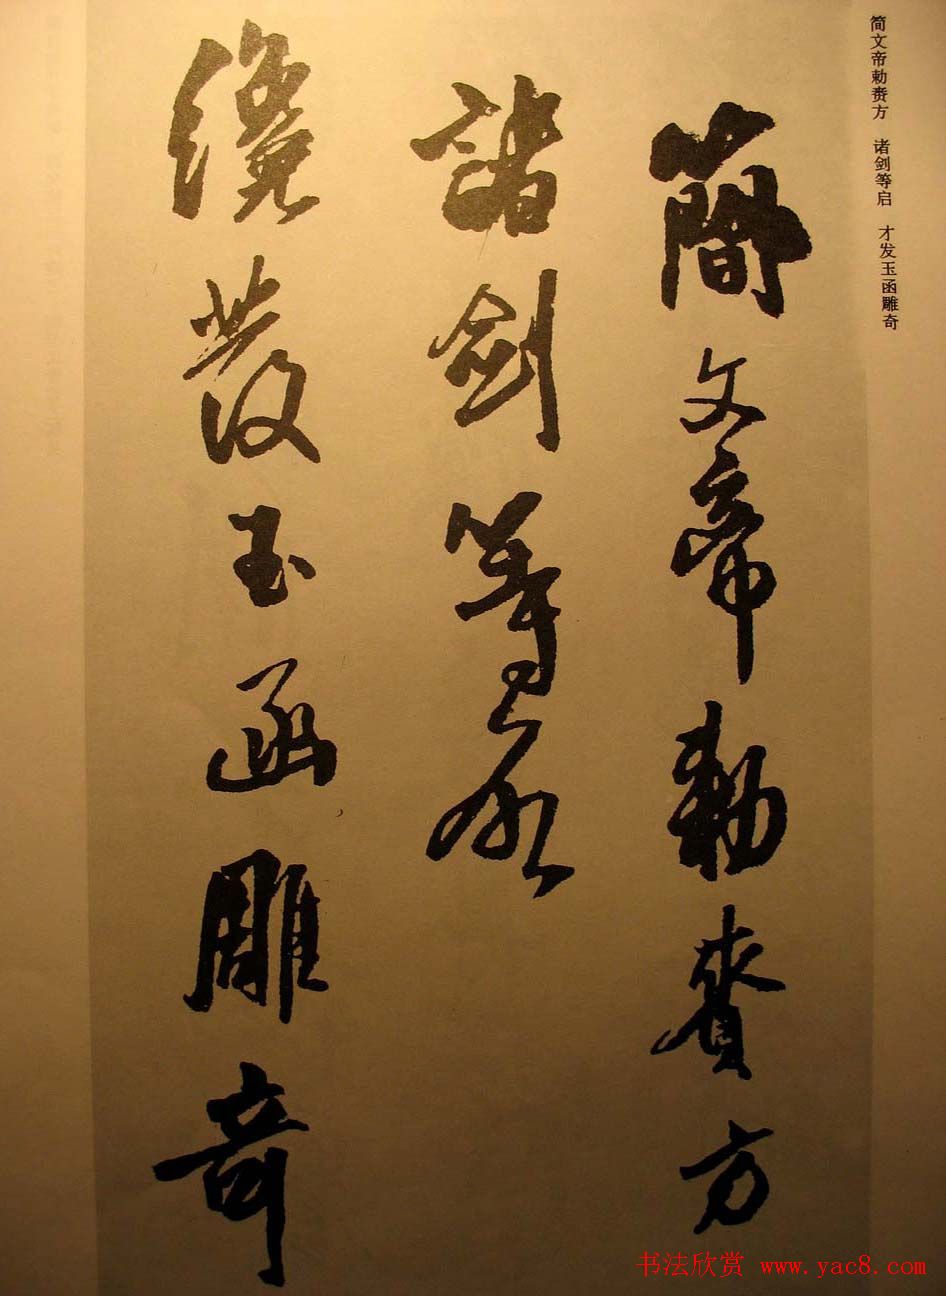 简文帝勅赉方 诸剑等启 才发玉函雕奇
簡文帝勅賚方
諸劍等啟
纔發玉函雕奇
书法欣赏 www.yac8.com